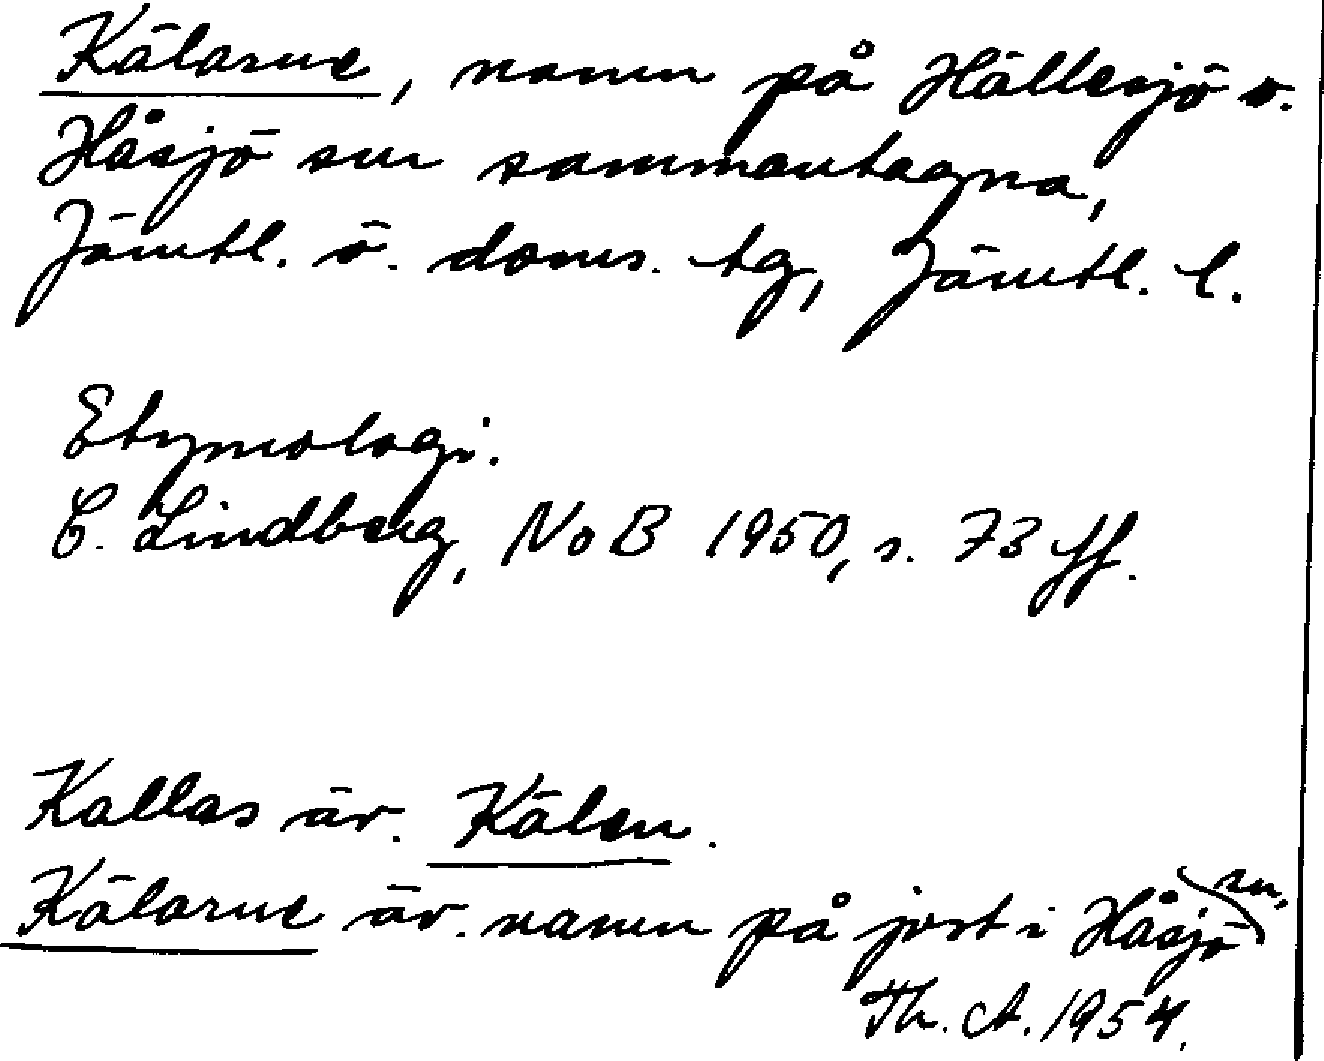 Kälarne, namn på Hällesjö o.
Håsjö snr sammantagna,
Jämtl. ö. doms. tg, Jämtl. l.
Etymologi.
C. Lindberg, NoB 1950, s. 73 ff.
Kallas äv. Kälen.
Kälarne äv. namn på jvst i Håsjö sn.
Th. A. 1954.